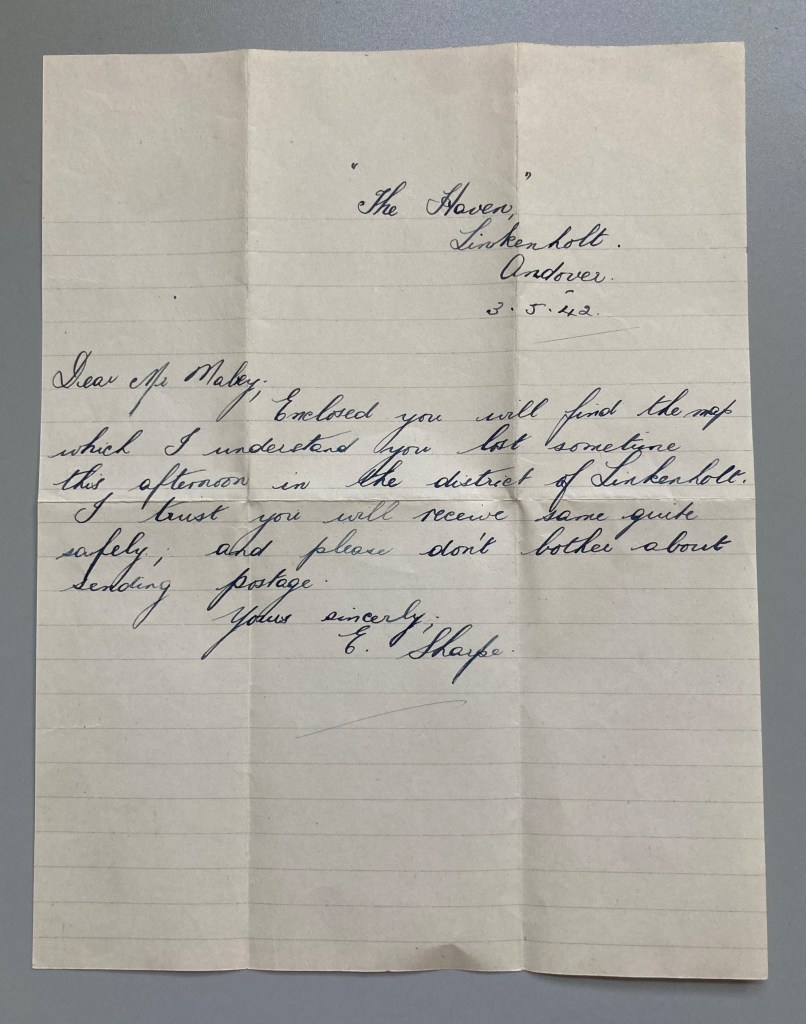 "The Haven,"
Linkenholt.
Andover.
3.5.42.
Dear Mr Maley;
Enclosed you will find the map
which I understand you lost sometime
this afternoon in the district of Linkenholt.
I trust you will receive same quite
safely; and please don't bother about
sending postage.
Yours sincerly;
E. Sharpe.